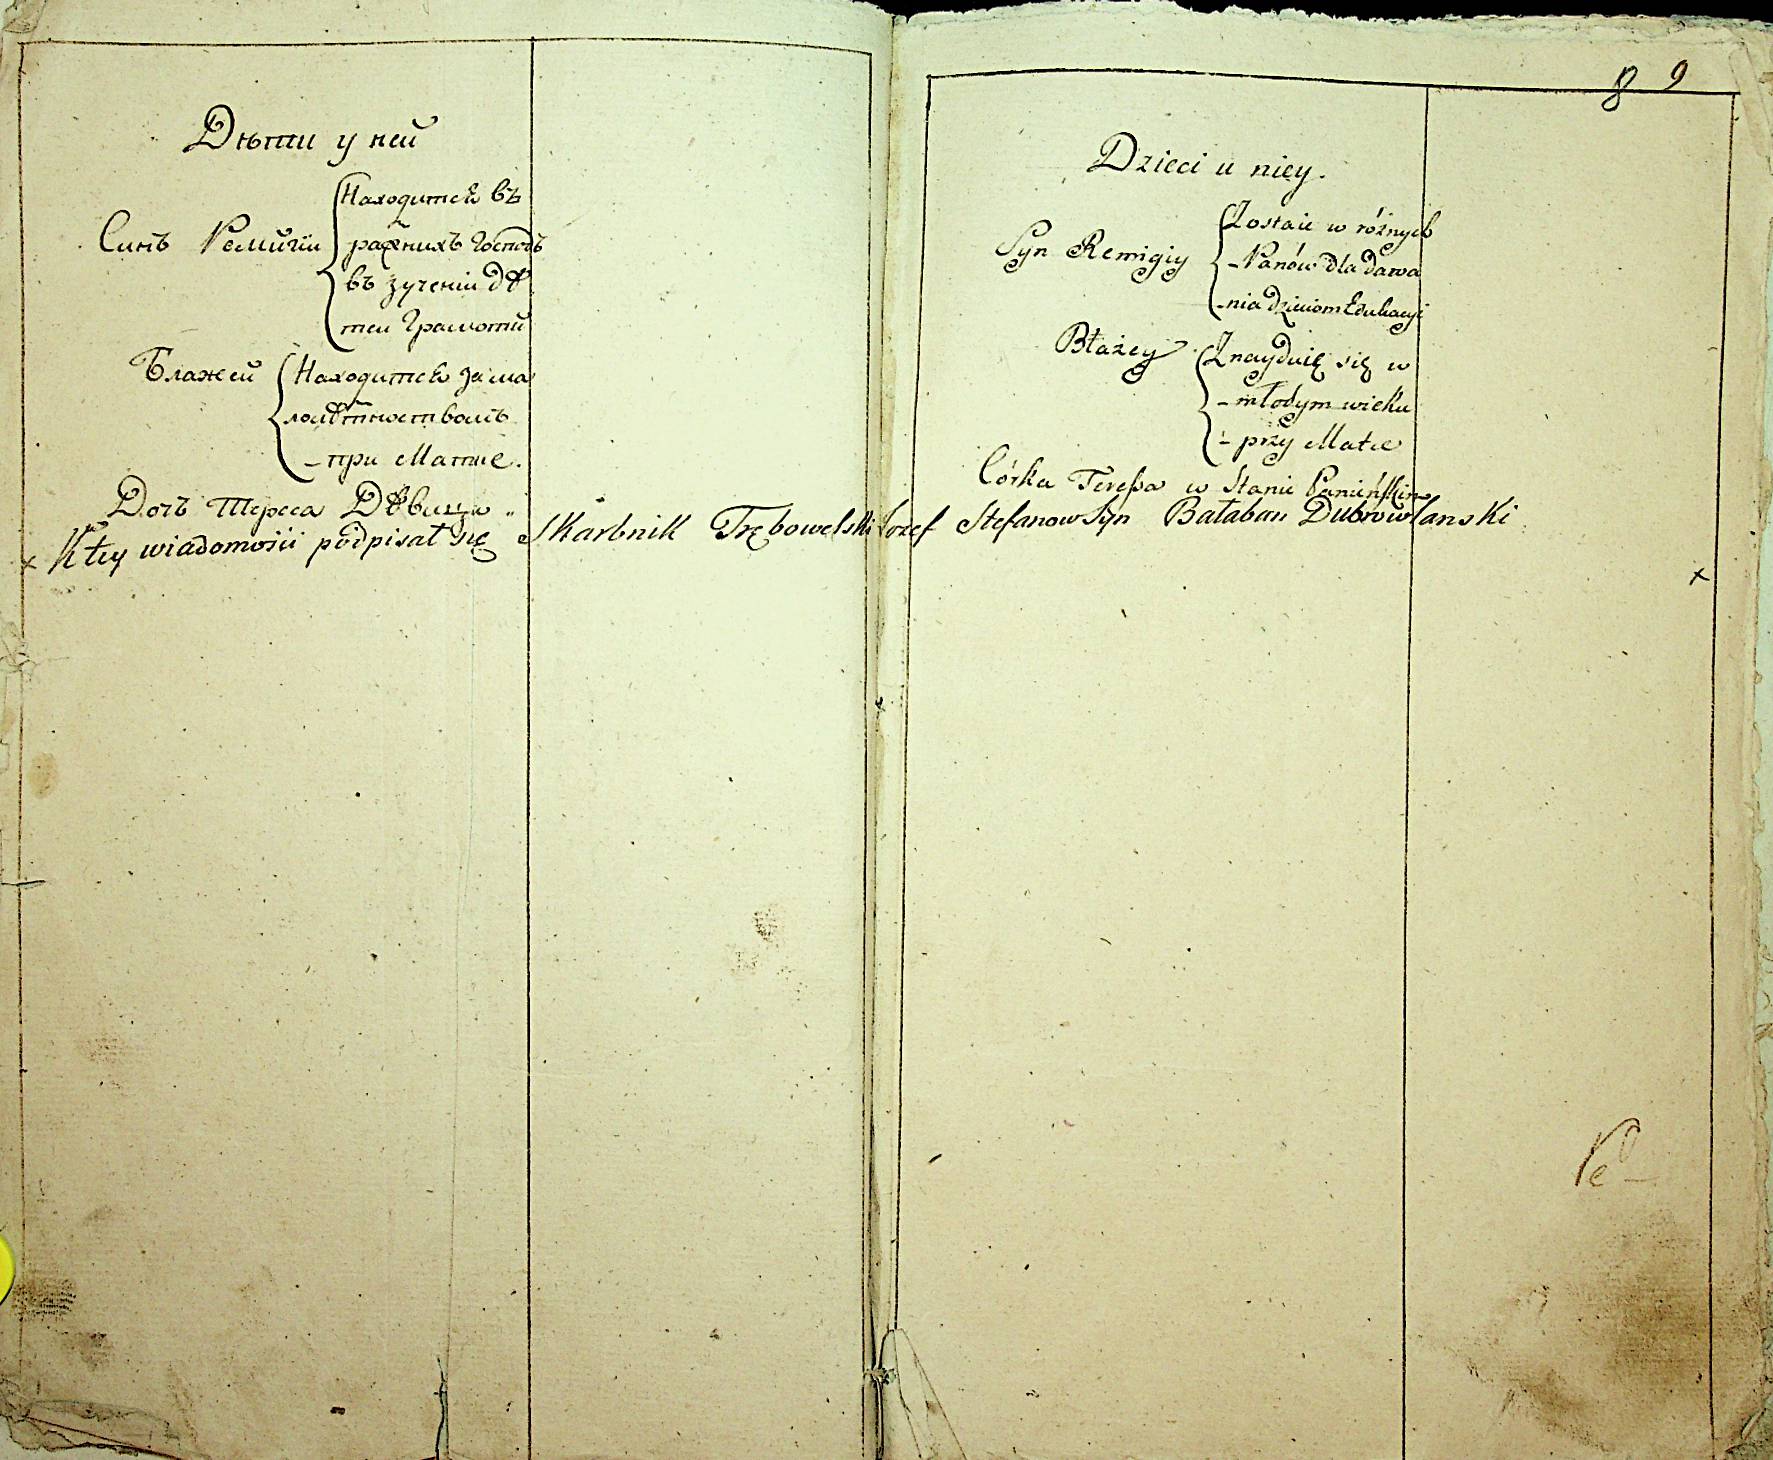 Дѣти у ней
Синъ Ремигіи
Находится въ
разнихъ Господъ
въ зученіи дѣ
теи Грамоти
Блажей
Находится за ма
лолѣтностволъ
- при Матце.
Дочъ Тереса Дѣвица
8 9
Dzieci u niey.
Syn Remigiy
Zostaie w różnych
- Panów dla dawa
- nia dzieciom Edukacyi
Błażey
Znayduię się w
- młodym wieku
- przy Matce
Córka Teressa w Stanie Panieńskim
x K tey wiadomości podpisał się Skarbnik Trębowelski Iozef Stefanow Syn Bałaban Dubrowlanski
x